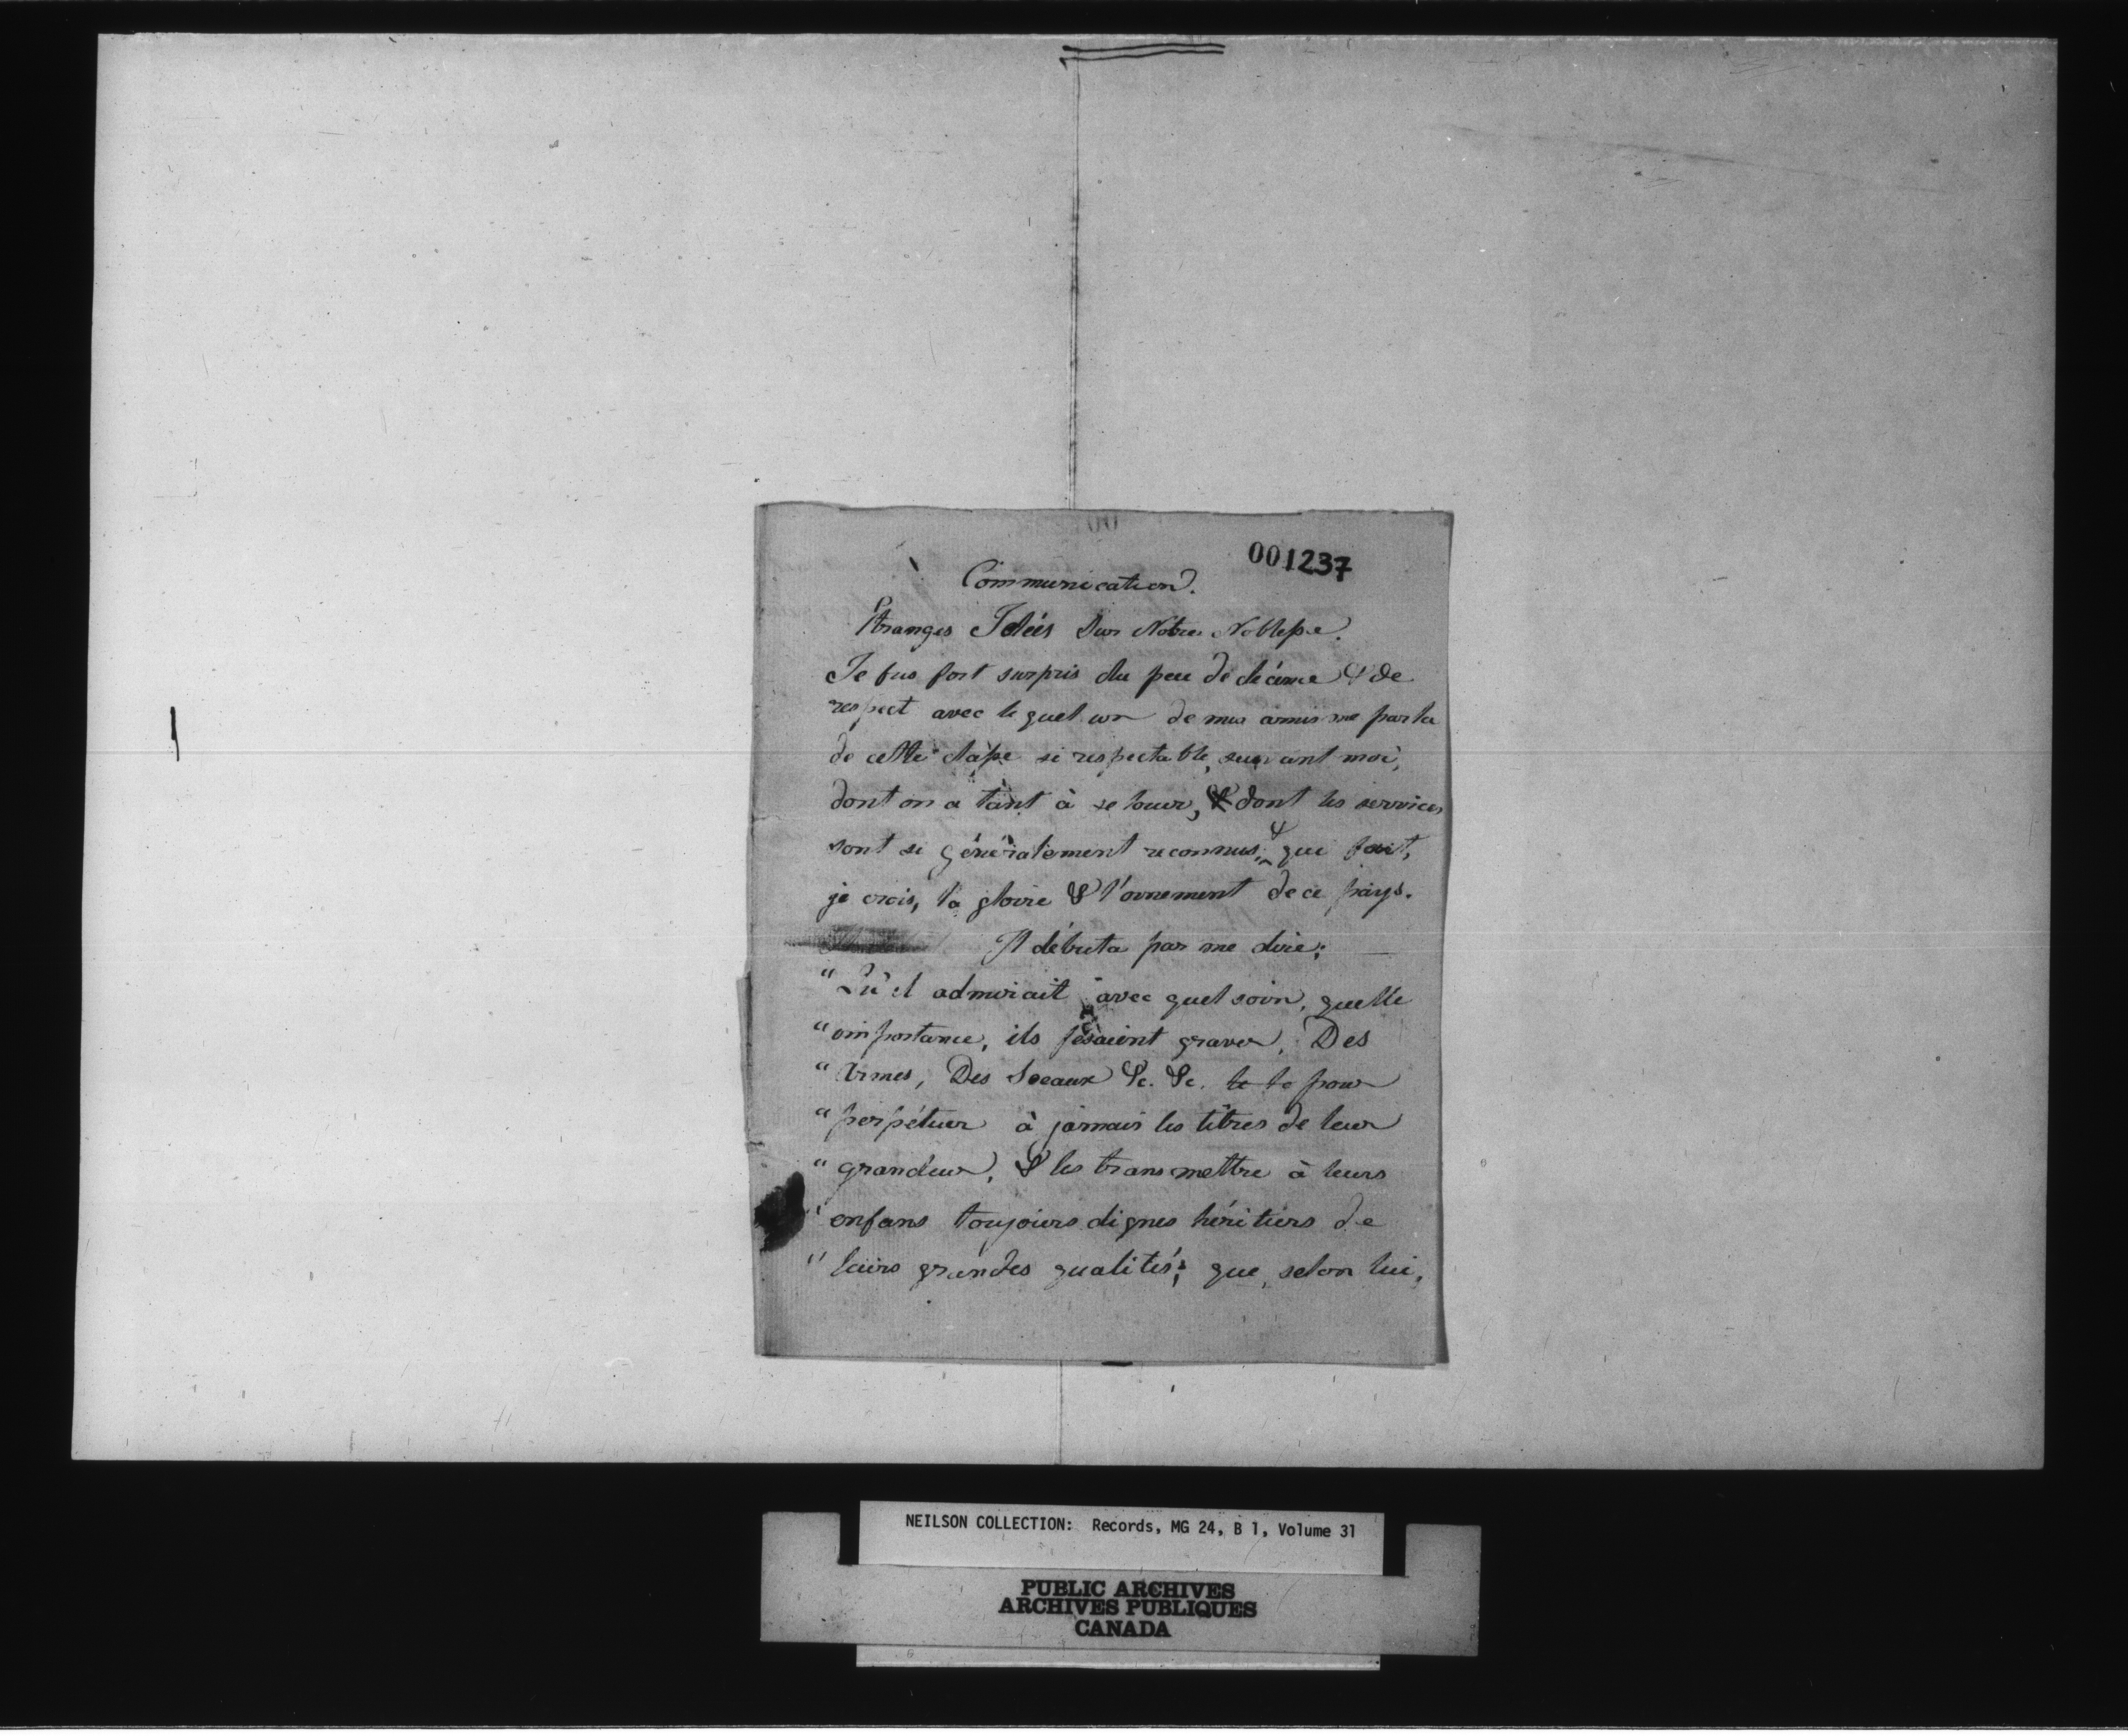 001237
Communication.
Etranges Idées Sur Notre Noblesse.
Je fus fort surpris du peu de décence & de
respect avec lequel un de mes amis me parla
de cette classe si respectable, suivant moi,
dont on a tant à se louer, & dont les services
sont si généralement reconnus, & qui fait,
je crois, la gloire & l'ornement de ce pays.
Il débuta par me dire;
"Qu'il admirait avec quel soin, quelle
"importance, ils fesaient graver, Des
"Armes, Des Sceaux &c. &c. pour
"perpétuer à jamais les titres de leur
"grandeur, & les transmettre à leurs
"enfans toujours dignes héritiers de
"leurs grandes qualités; que, selon lui,
NEILSON COLLECTION: Records, MG 24, B 1, Volume 31
PUBLIC ARCHIVES
ARCHIVES PUBLIQUES
CANADA